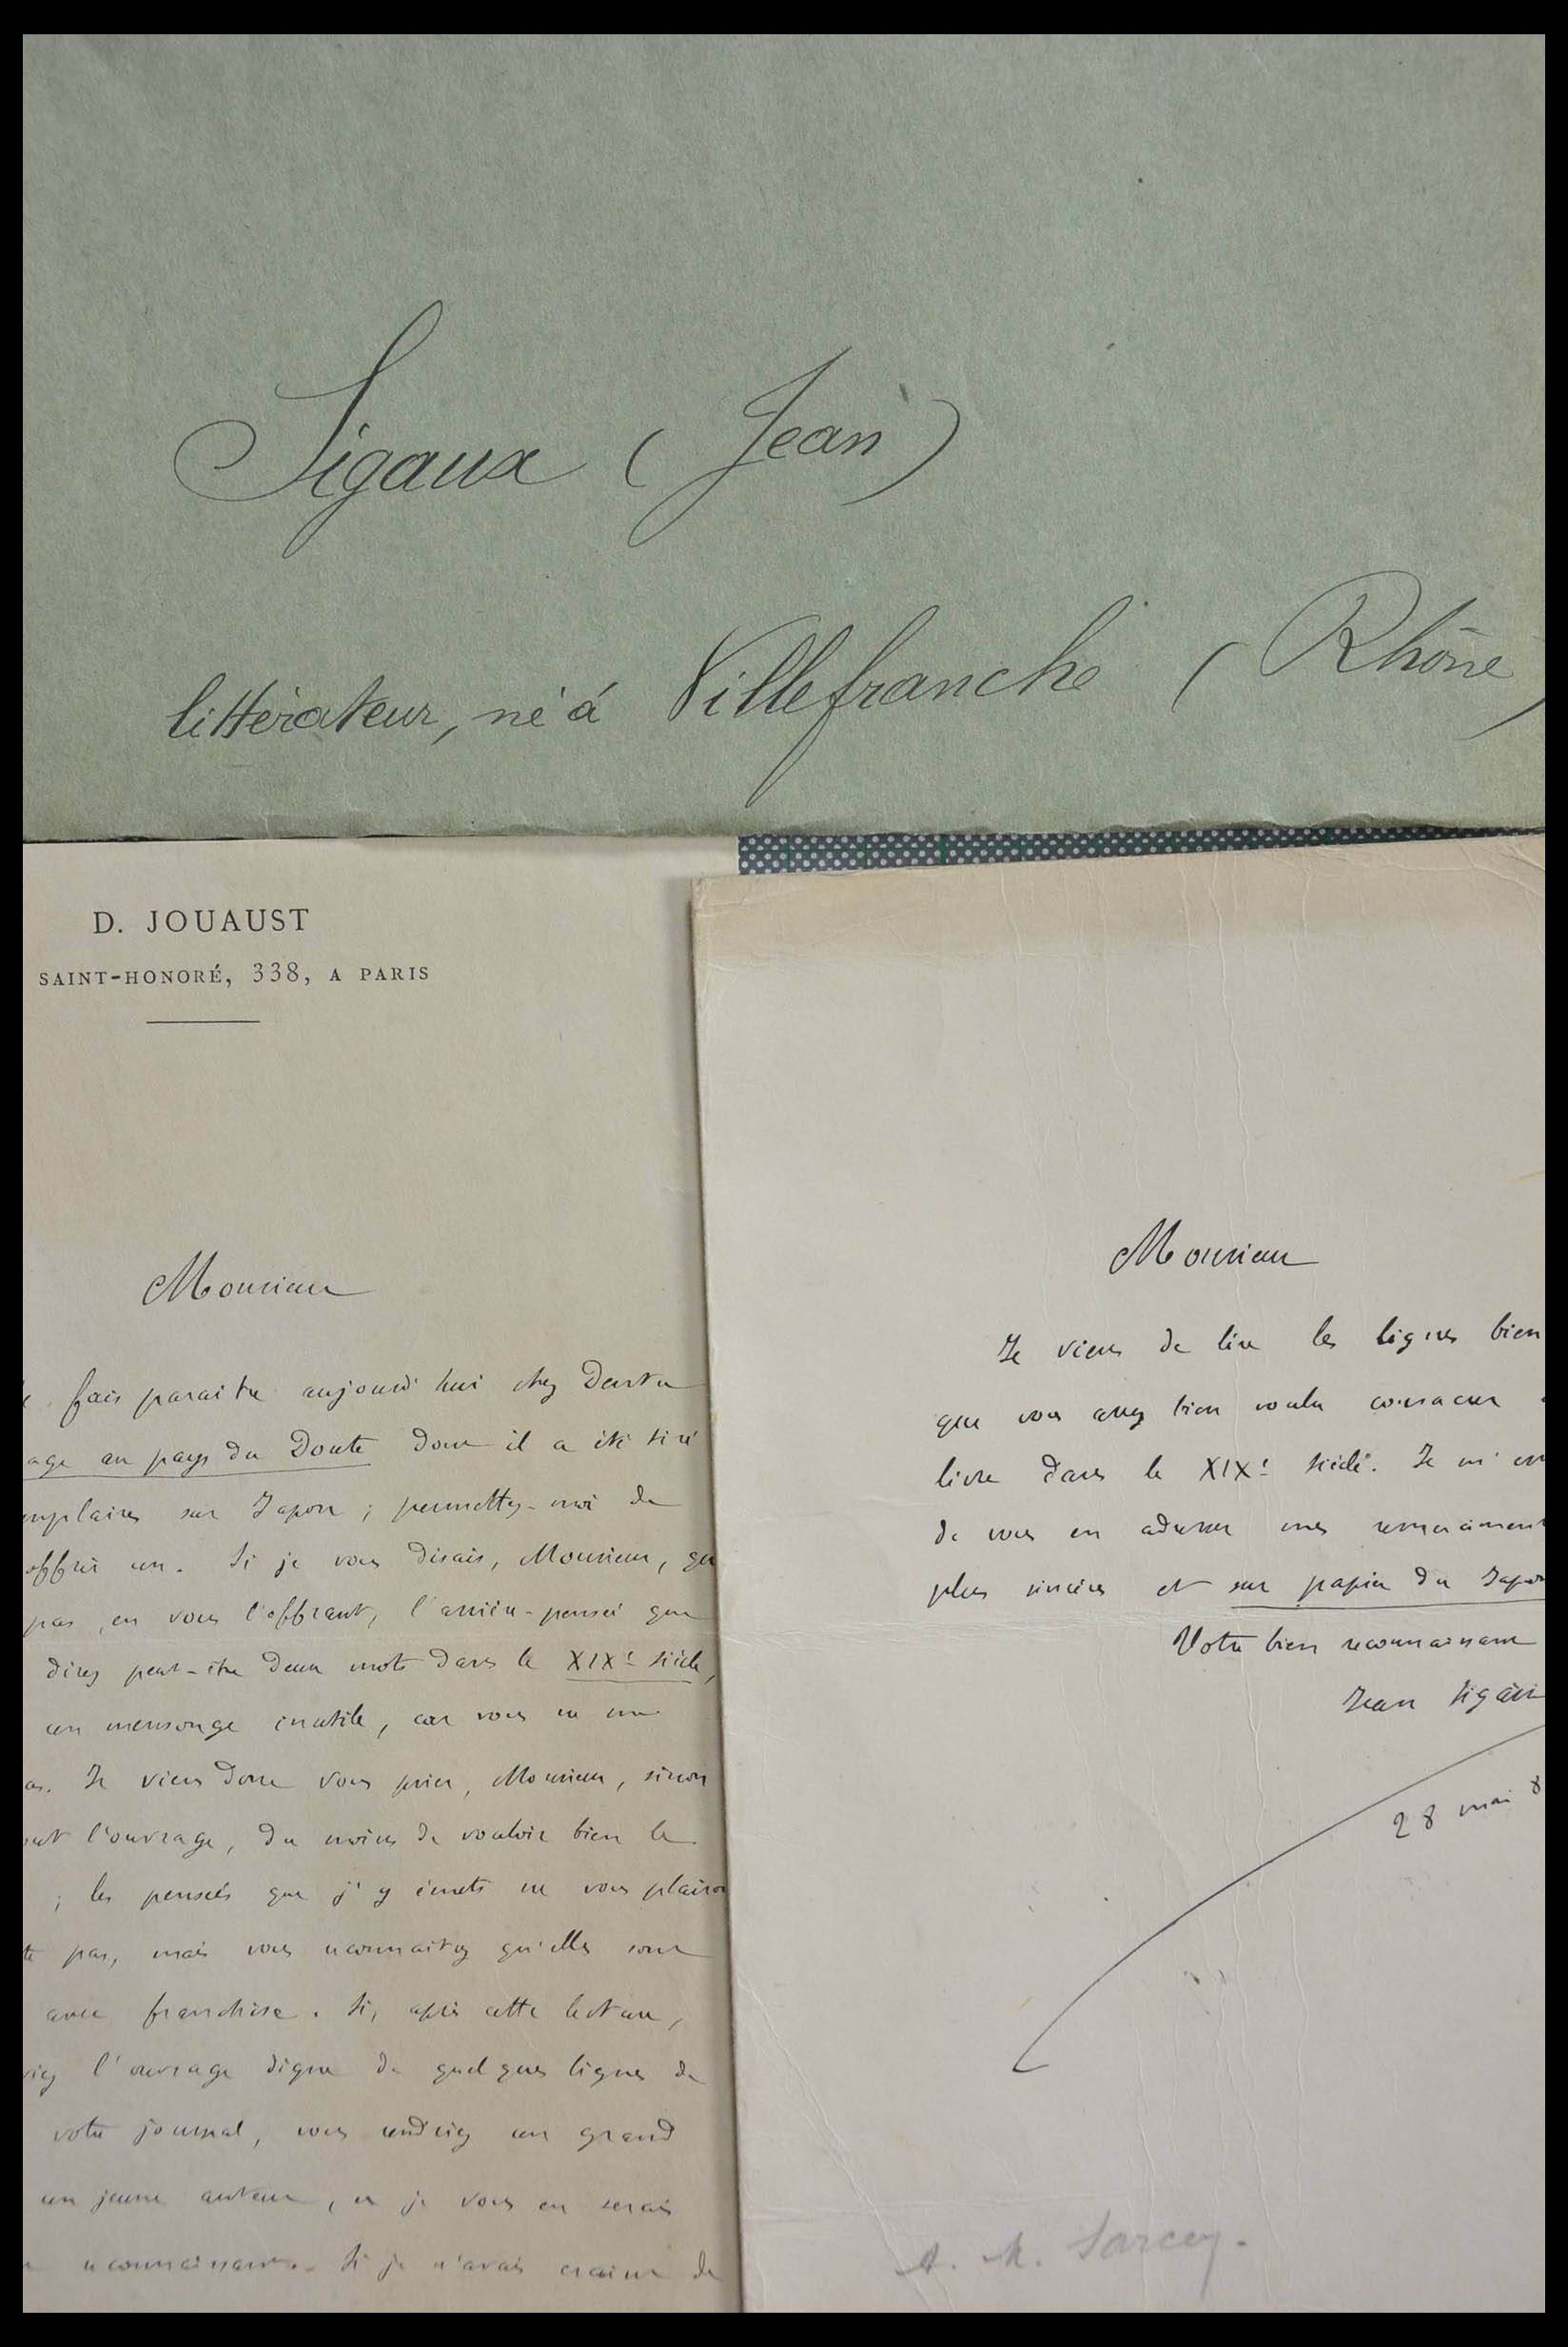 Sigaux (Jean)
littérateur, né à Villefranche (Rhône)
D. JOUAUST
SAINT-HONORÉ, 338, A PARIS
Monsieur
fais paraître aujourd'hui chez Dentu
age au pays du Doute dont il a été tiré
emplaires sur Japon ; permettez-moi de
offrir un. Si je vous disais, Monsieur, qu
pas, en vous l'offrant, l'arrière-pensée que
direz peut-être deux mots dans le XIXe siècle,
un mensonge inutile, car vous ne me
as. Je viens donc vous prier, Monsieur, sinon
l'ouvrage, du moins de vouloir bien le
; les pensées que j'y émets ne vous plairon
te pas, mais vous reconnaîtrez qu'elles sont
avec franchise. Si, après cette lecture,
l'ouvrage digne de quelques lignes de
votre journal, vous rendriez un grand
un jeune auteur, et je vous en serais
reconnaissant. Si je n'avais craint de
Monsieur
Je viens de lire les lignes bien
que vous avez bien voulu consacrer
livre dans le XIXe siècle. Je m'em
de vous en adresser mes remerciement
plus sincères et sur papier du Japon
Votre bien reconnaissant
Jean Sigau
28 mai 8
A. M. Sarcey.